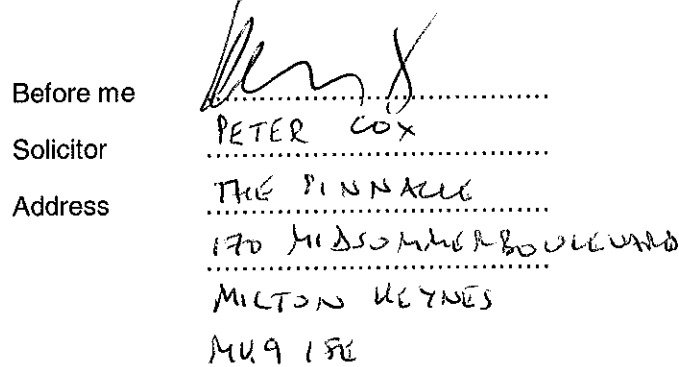 Before me
Solicitor PETER COX
Address THE PINNACLE
170 MIDSUMMER BOULEVARD
MILTON KEYNES
MK9 1FE